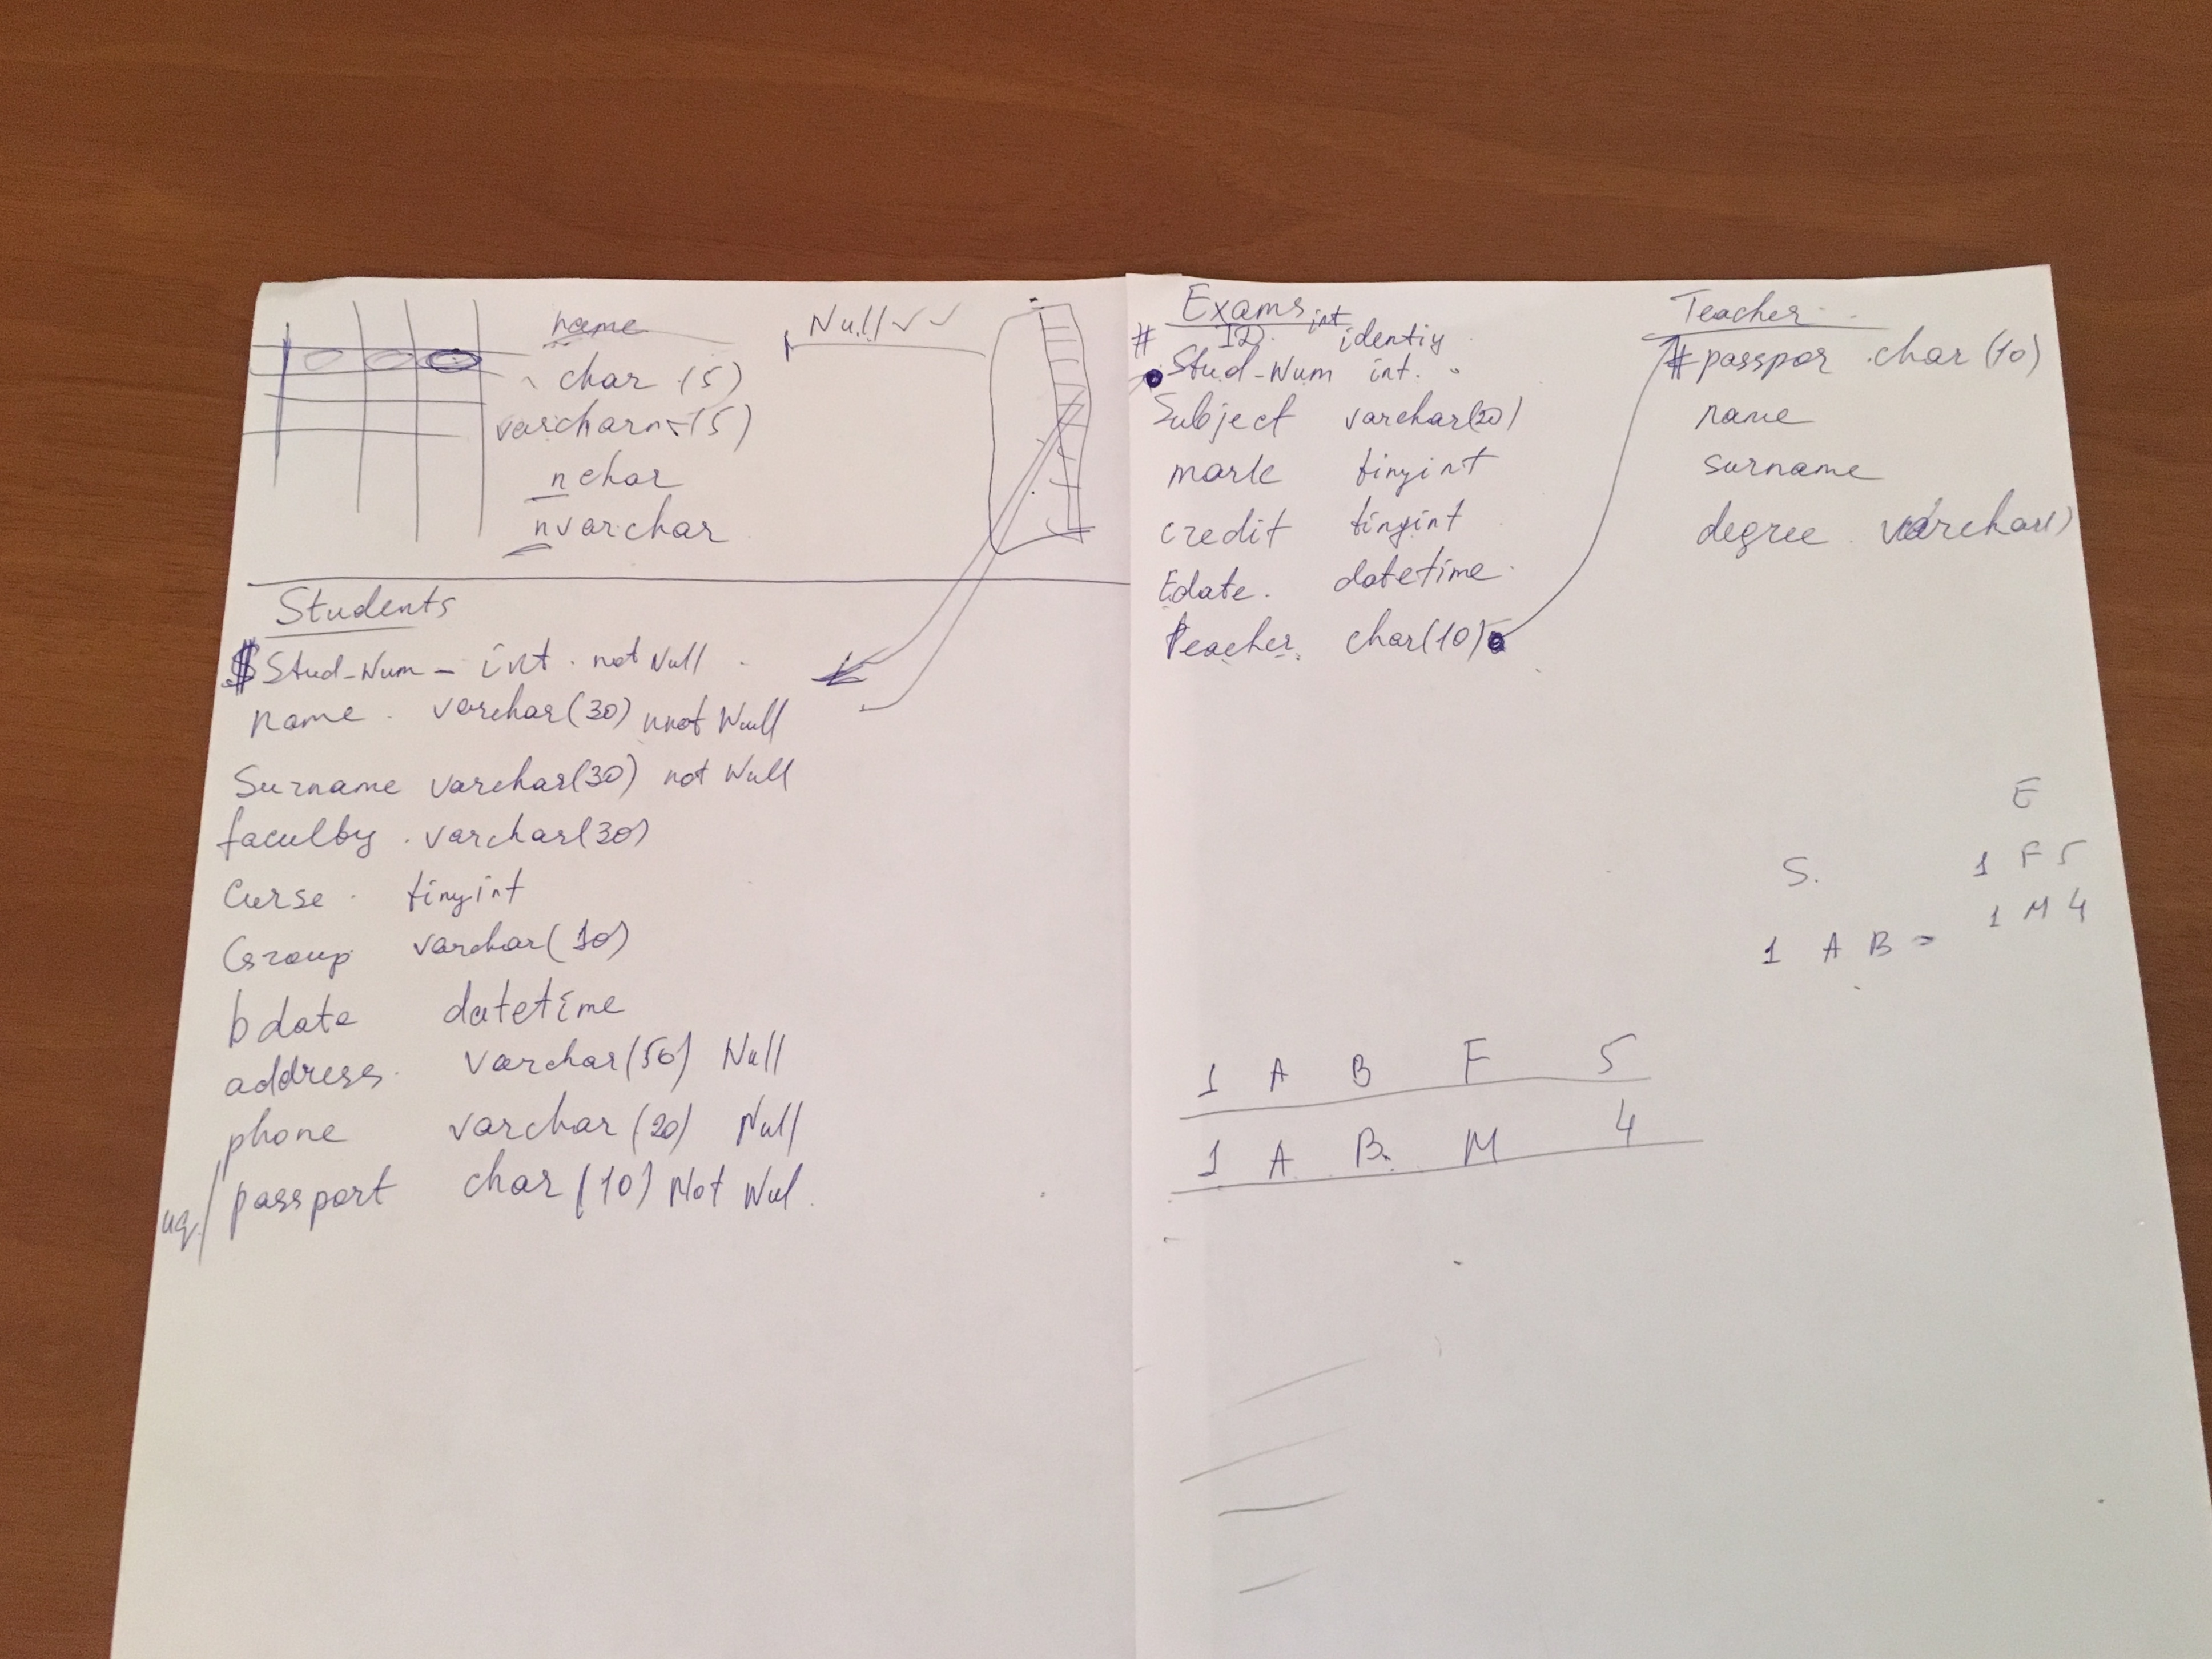 name
Null
char (5)
varchar (5)
nchar
nvarchar
Students
Stud-Num - int not Null
name varchar(30) not Null
Surname varchar(30) not Null
faculty varchar(30)
Curse tinyint
Group varchar(10)
bdate datetime
address varchar(50) Null
phone varchar(20) Null
uq/ passport char(10) Not Nul.
Exams
# ID. int identiy
Stud-Num int.
Subject varchar(20)
mark tinyint
credit tinyint
Edate. datetime
teacher char(10)
Teacher
# passpor char(10)
name
surname
degree varchar()
E
S. 1 F 5
1 A B 1 M 4
1 A B F 5
1 A B. M 4